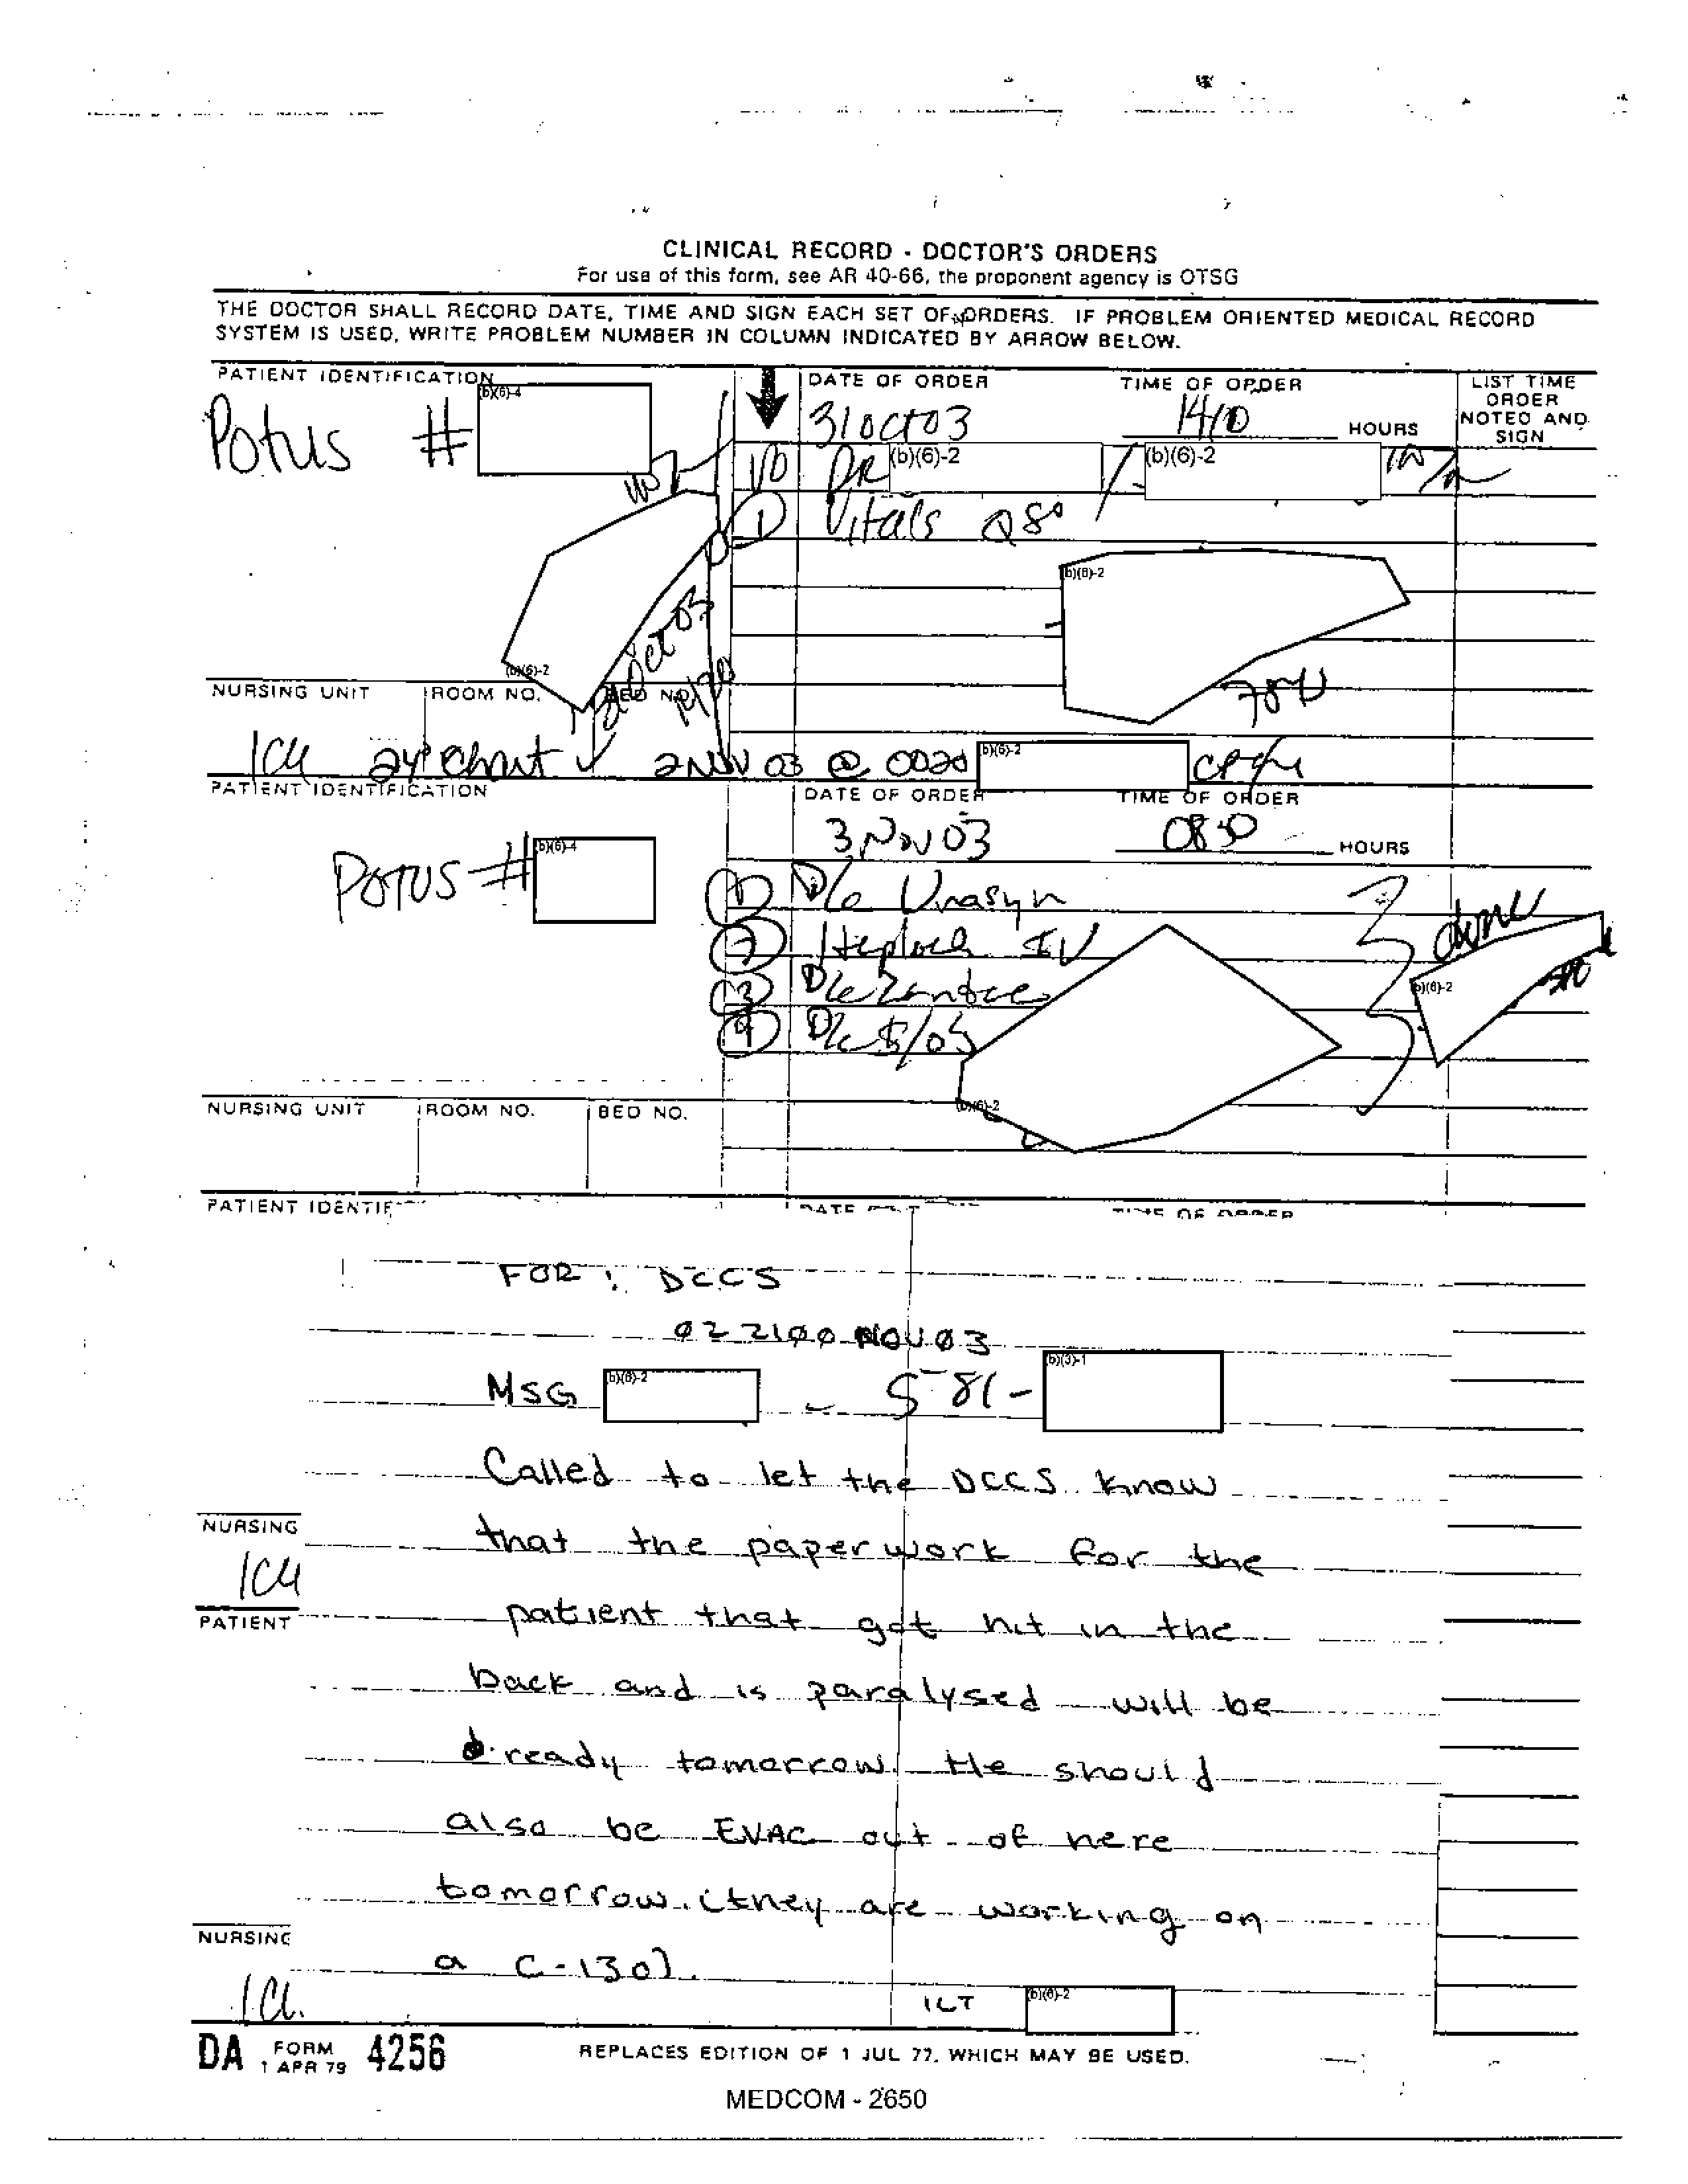 CLINICAL RECORD - DOCTOR'S ORDERS
For use of this form, see AR 40-66, the proponent agency is OTSG
THE DOCTOR SHALL RECORD DATE, TIME AND SIGN EACH SET OF ORDERS. IF PROBLEM ORIENTED MEDICAL RECORD
SYSTEM IS USED, WRITE PROBLEM NUMBER IN COLUMN INDICATED BY ARROW BELOW.
PATIENT IDENTIFICATION
DATE OF ORDER
TIME OF ORDER
LIST TIME
ORDER
NOTED AND
SIGN
Potus # (b)(6)-4
31 Oct 03
1410 HOURS
VO DR (b)(6)-2 / (b)(6)-2
① Vitals Q8°
(b)(6)-2
(b)(6)-2
31 Oct 03
1420
NURSING UNIT
ROOM NO.
BED NO.
ICU
24° Chart ✓ 2 NOV 03 @ 0020 (b)(6)-2
PATIENT IDENTIFICATION
DATE OF ORDER
TIME OF ORDER
POTUS # (b)(6)-4
3 Nov 03
0830 HOURS
① D/c Unasyn
② Heplock IV
③ D/c Zantac
④ D/c
(b)(6)-2
(b)(6)-2
NURSING UNIT
ROOM NO.
BED NO.
PATIENT IDENTIF
DATE
TIME OF ORDER
FOR: DCCS
022100 NOV 03
MSG (b)(6)-2 - 581- (b)(3)-1
Called to let the DCCS know
that the paperwork for the
patient that got hit in the
back and is paralysed will be
ready tomorrow. He should
also be EVAC out of here
tomorrow. (they are working on
a C-130).
1LT (b)(6)-2
NURSING
ICU
PATIENT
NURSING
ICU
DA FORM 4256
1 APR 79
REPLACES EDITION OF 1 JUL 77, WHICH MAY BE USED.
MEDCOM - 2650